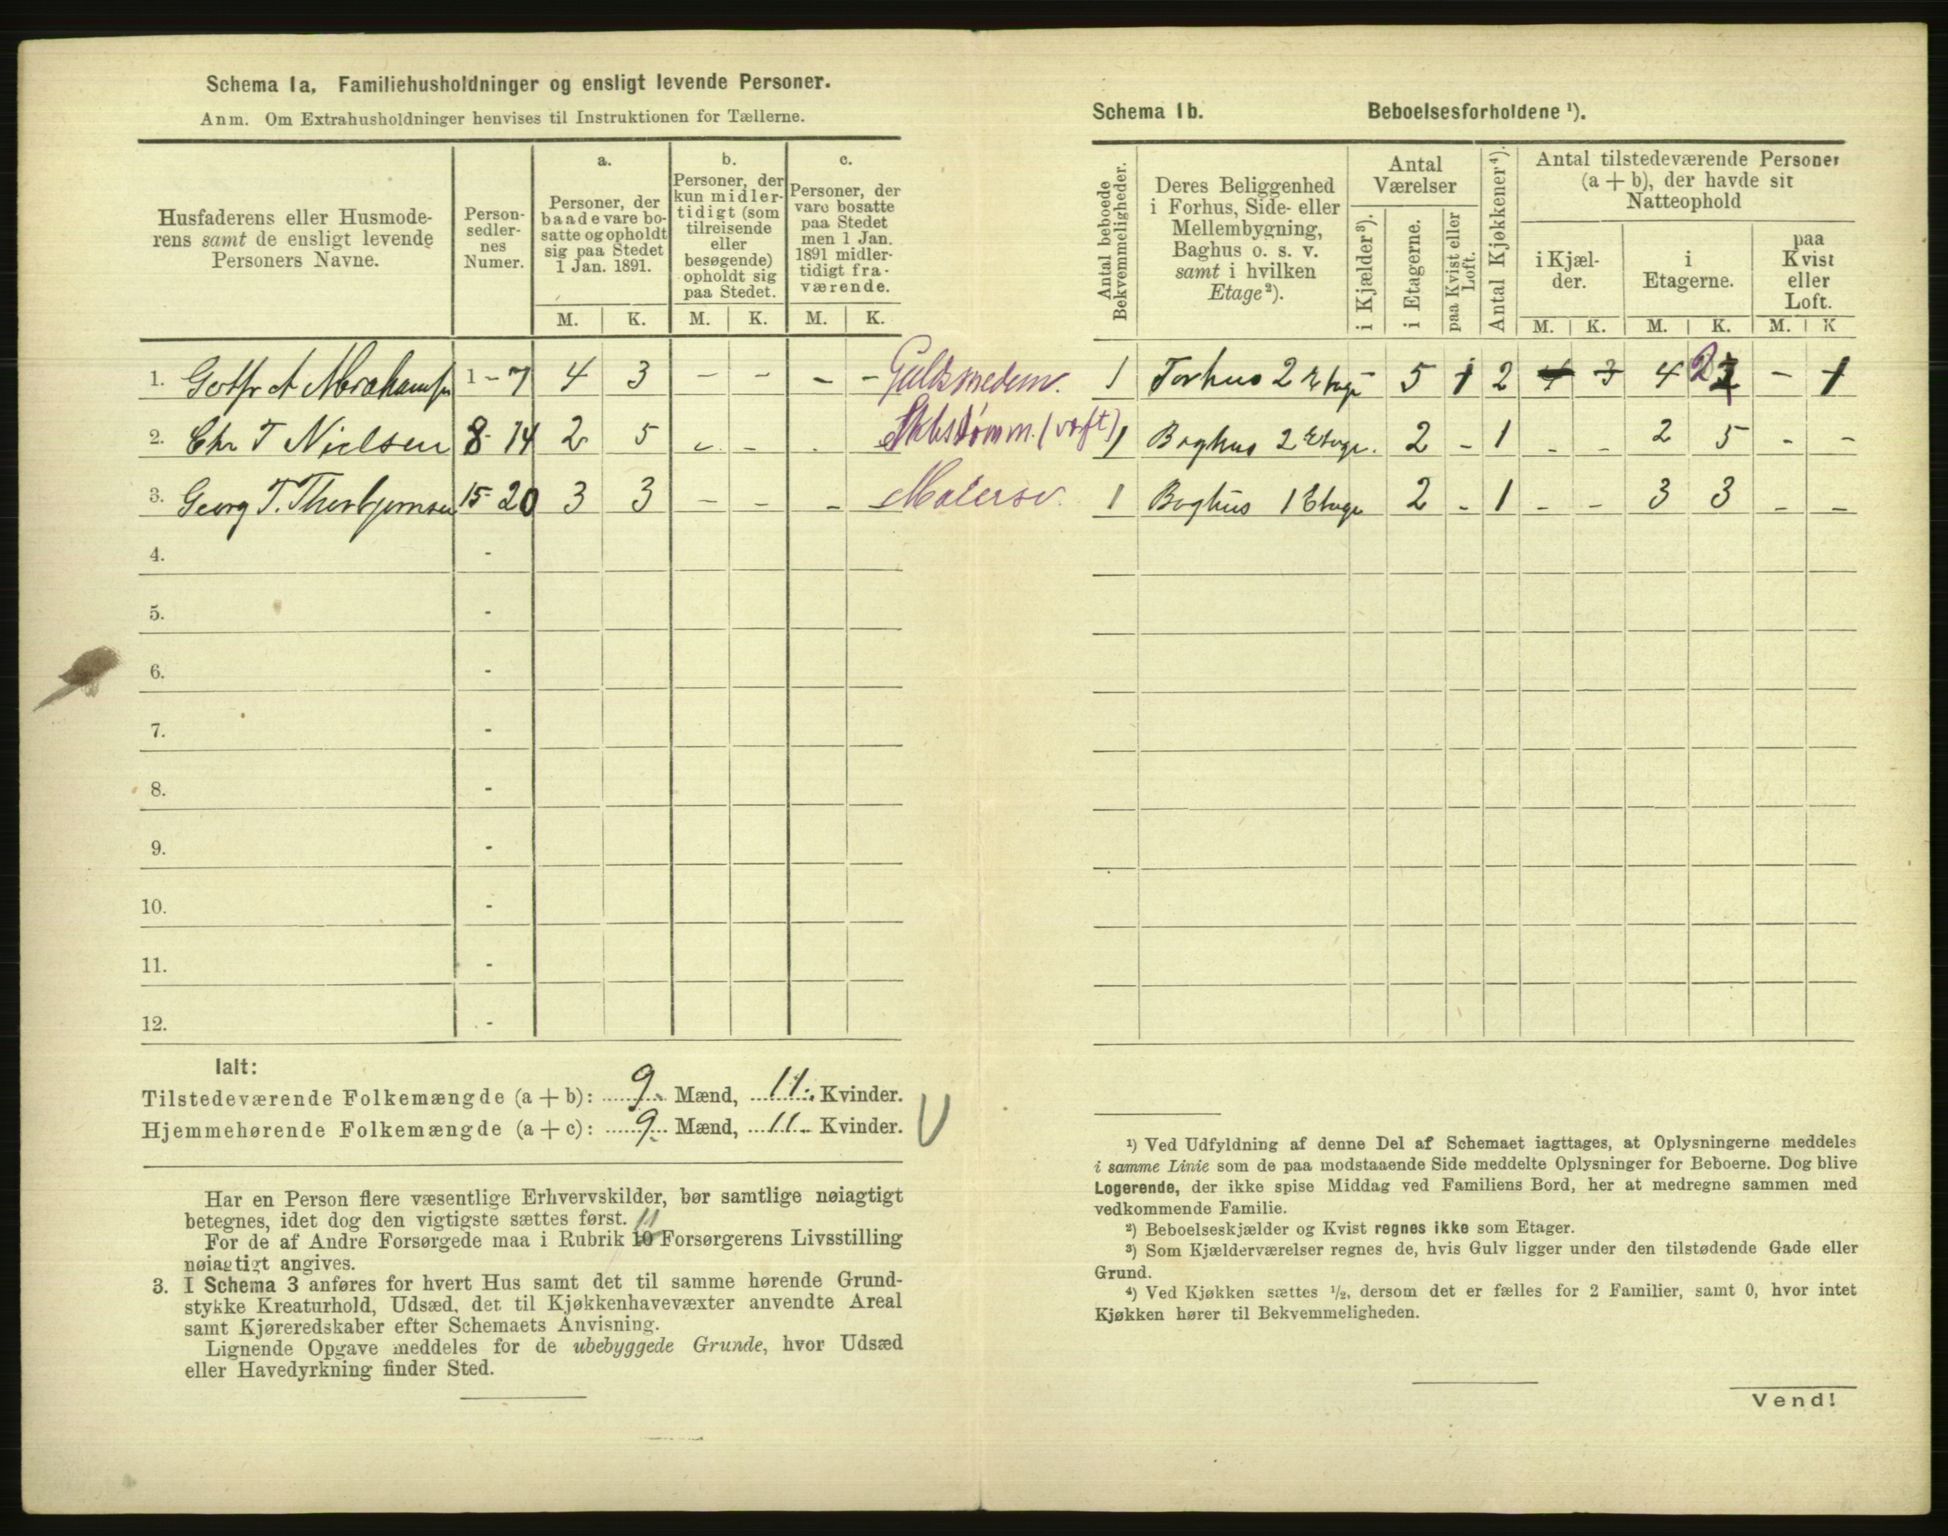 Schema 1a. Familiehusholdninger og ensligt levende Personer.
Anm. Om Extrahusholdninger henvises til Instruktionen for Tællerne.
Husfaderens eller Husmode-
rens samt de ensligt levende
Personers Navne.
Person-
sedler-
nes
Numer.
a.
Personer, der
baade vare bo-
satte og opholdt
sig paa Stedet
1 Jan. 1891.
b.
Personer, der
kun midler-
tidigt (som
tilreisende
eller
besøgende)
opholdt sig
paa Stedet.
c.
Personer, der
vare bosatte
paa Stedet
men 1 Jan.
1891 midler-
tidigt fra-
værende.
M. K. M. K. M. K.
1. Gotfr A Abrahamsen 1 - 7 4 3 - - - - Guldsmedem.
2. Chr T Nielsen 8 - 14 2 5 - - - (værft)
3. Georg T. Thorbjørnsen 15 - 20 3 3 - - - Malersv.
4. -
5. -
6. -
7. -
8. -
9. -
10. -
11. -
12. -
Ialt:
Tilstedeværende Folkemængde (a + b): 9 Mænd, 11 Kvinder.
Hjemmehørende Folkemængde (a + c): 9 Mænd, 11 Kvinder.
Har en Person flere væsentlige Erhvervskilder, bør samtlige nøiagtigt
betegnes, idet dog den vigtigste sættes først.
11
For de af Andre Forsørgede maa i Rubrik 10 Forsørgerens Livsstilling
nøiagtigt angives.
3. I Schema 3 anføres for hvert Hus samt det til samme hørende Grund-
stykke Kreaturhold, Udsæd, det til Kjøkkenhavevæxter anvendte Areal
samt Kjøreredskaber efter Schemaets Anvisning.
Lignende Opgave meddeles for de ubebyggede Grunde, hvor Udsæd
eller Havedyrkning finder Sted.
Schema 1b. Beboelsesforholdene ¹).
Antal beboede
Bekvemmeligheder.
Deres Beliggenhed
i Forhus, Side- eller
Mellembygning,
Baghus o. s. v.
samt i hvilken
Etage²).
Antal
Værelser
i Kjælder³).
i Etagerne.
paa Kvist eller
Loft.
Antal Kjøkkener⁴).
Antal tilstedeværende Personer
(a + b), der havde sit
Natteophold
i Kjæl-
der.
i
Etagerne.
paa
Kvist
eller
Loft.
M. K. M. K. M. K
1 Forhus 2 Etage - 5 1 2 4 3 4 2 - 1
1 Baghus 2 Etage. 2 - 1 - - 2 5 - -
1 Baghus 1 Etage 2 - 1 - - 3 3 - -
¹) Ved Udfyldning af denne Del af Schemaet iagttages, at Oplysningerne meddeles
i samme Linie som de paa modstaaende Side meddelte Oplysninger for Beboerne. Dog blive
Logerende, der ikke spise Middag ved Familiens Bord, her at medregne sammen med
vedkommende Familie.
²) Beboelseskjælder og Kvist regnes ikke som Etager.
³) Som Kjælderværelser regnes de, hvis Gulv ligger under den tilstødende Gade eller
Grund.
⁴) Ved Kjøkken sættes ½, dersom det er fælles for 2 Familier, samt 0, hvor intet
Kjøkken hører til Bekvemmeligheden.
Vend!